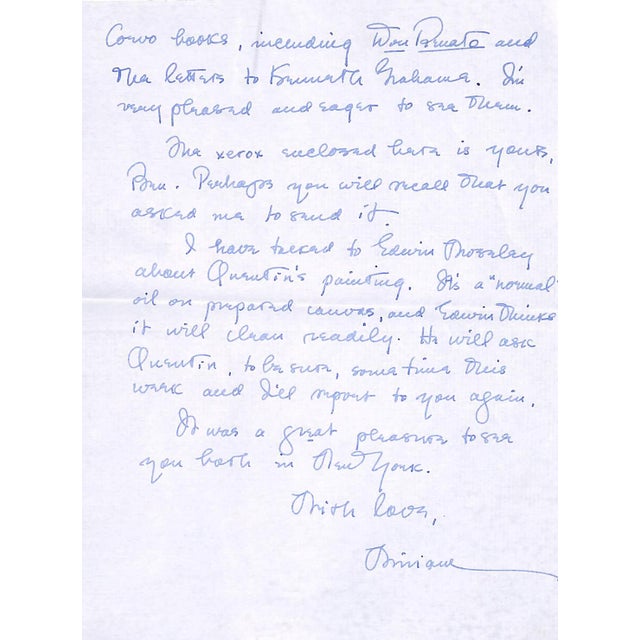 Corvo books, including Don Renato and
the letters to Kenneth Grahame. I'm
very pleased and eager to see them.
The xerox enclosed here is yours,
Ben. Perhaps you will recall that you
asked me to send it.
I have talked to Edwin Moseley
about Quentin's painting. It's a "normal"
oil on prepared canvas, and Edwin thinks
it will clean readily. He will ask
Quentin, to be sure, some time this
week and I'll report to you again.
It was a great pleasure to see
you both in New York.
With love,